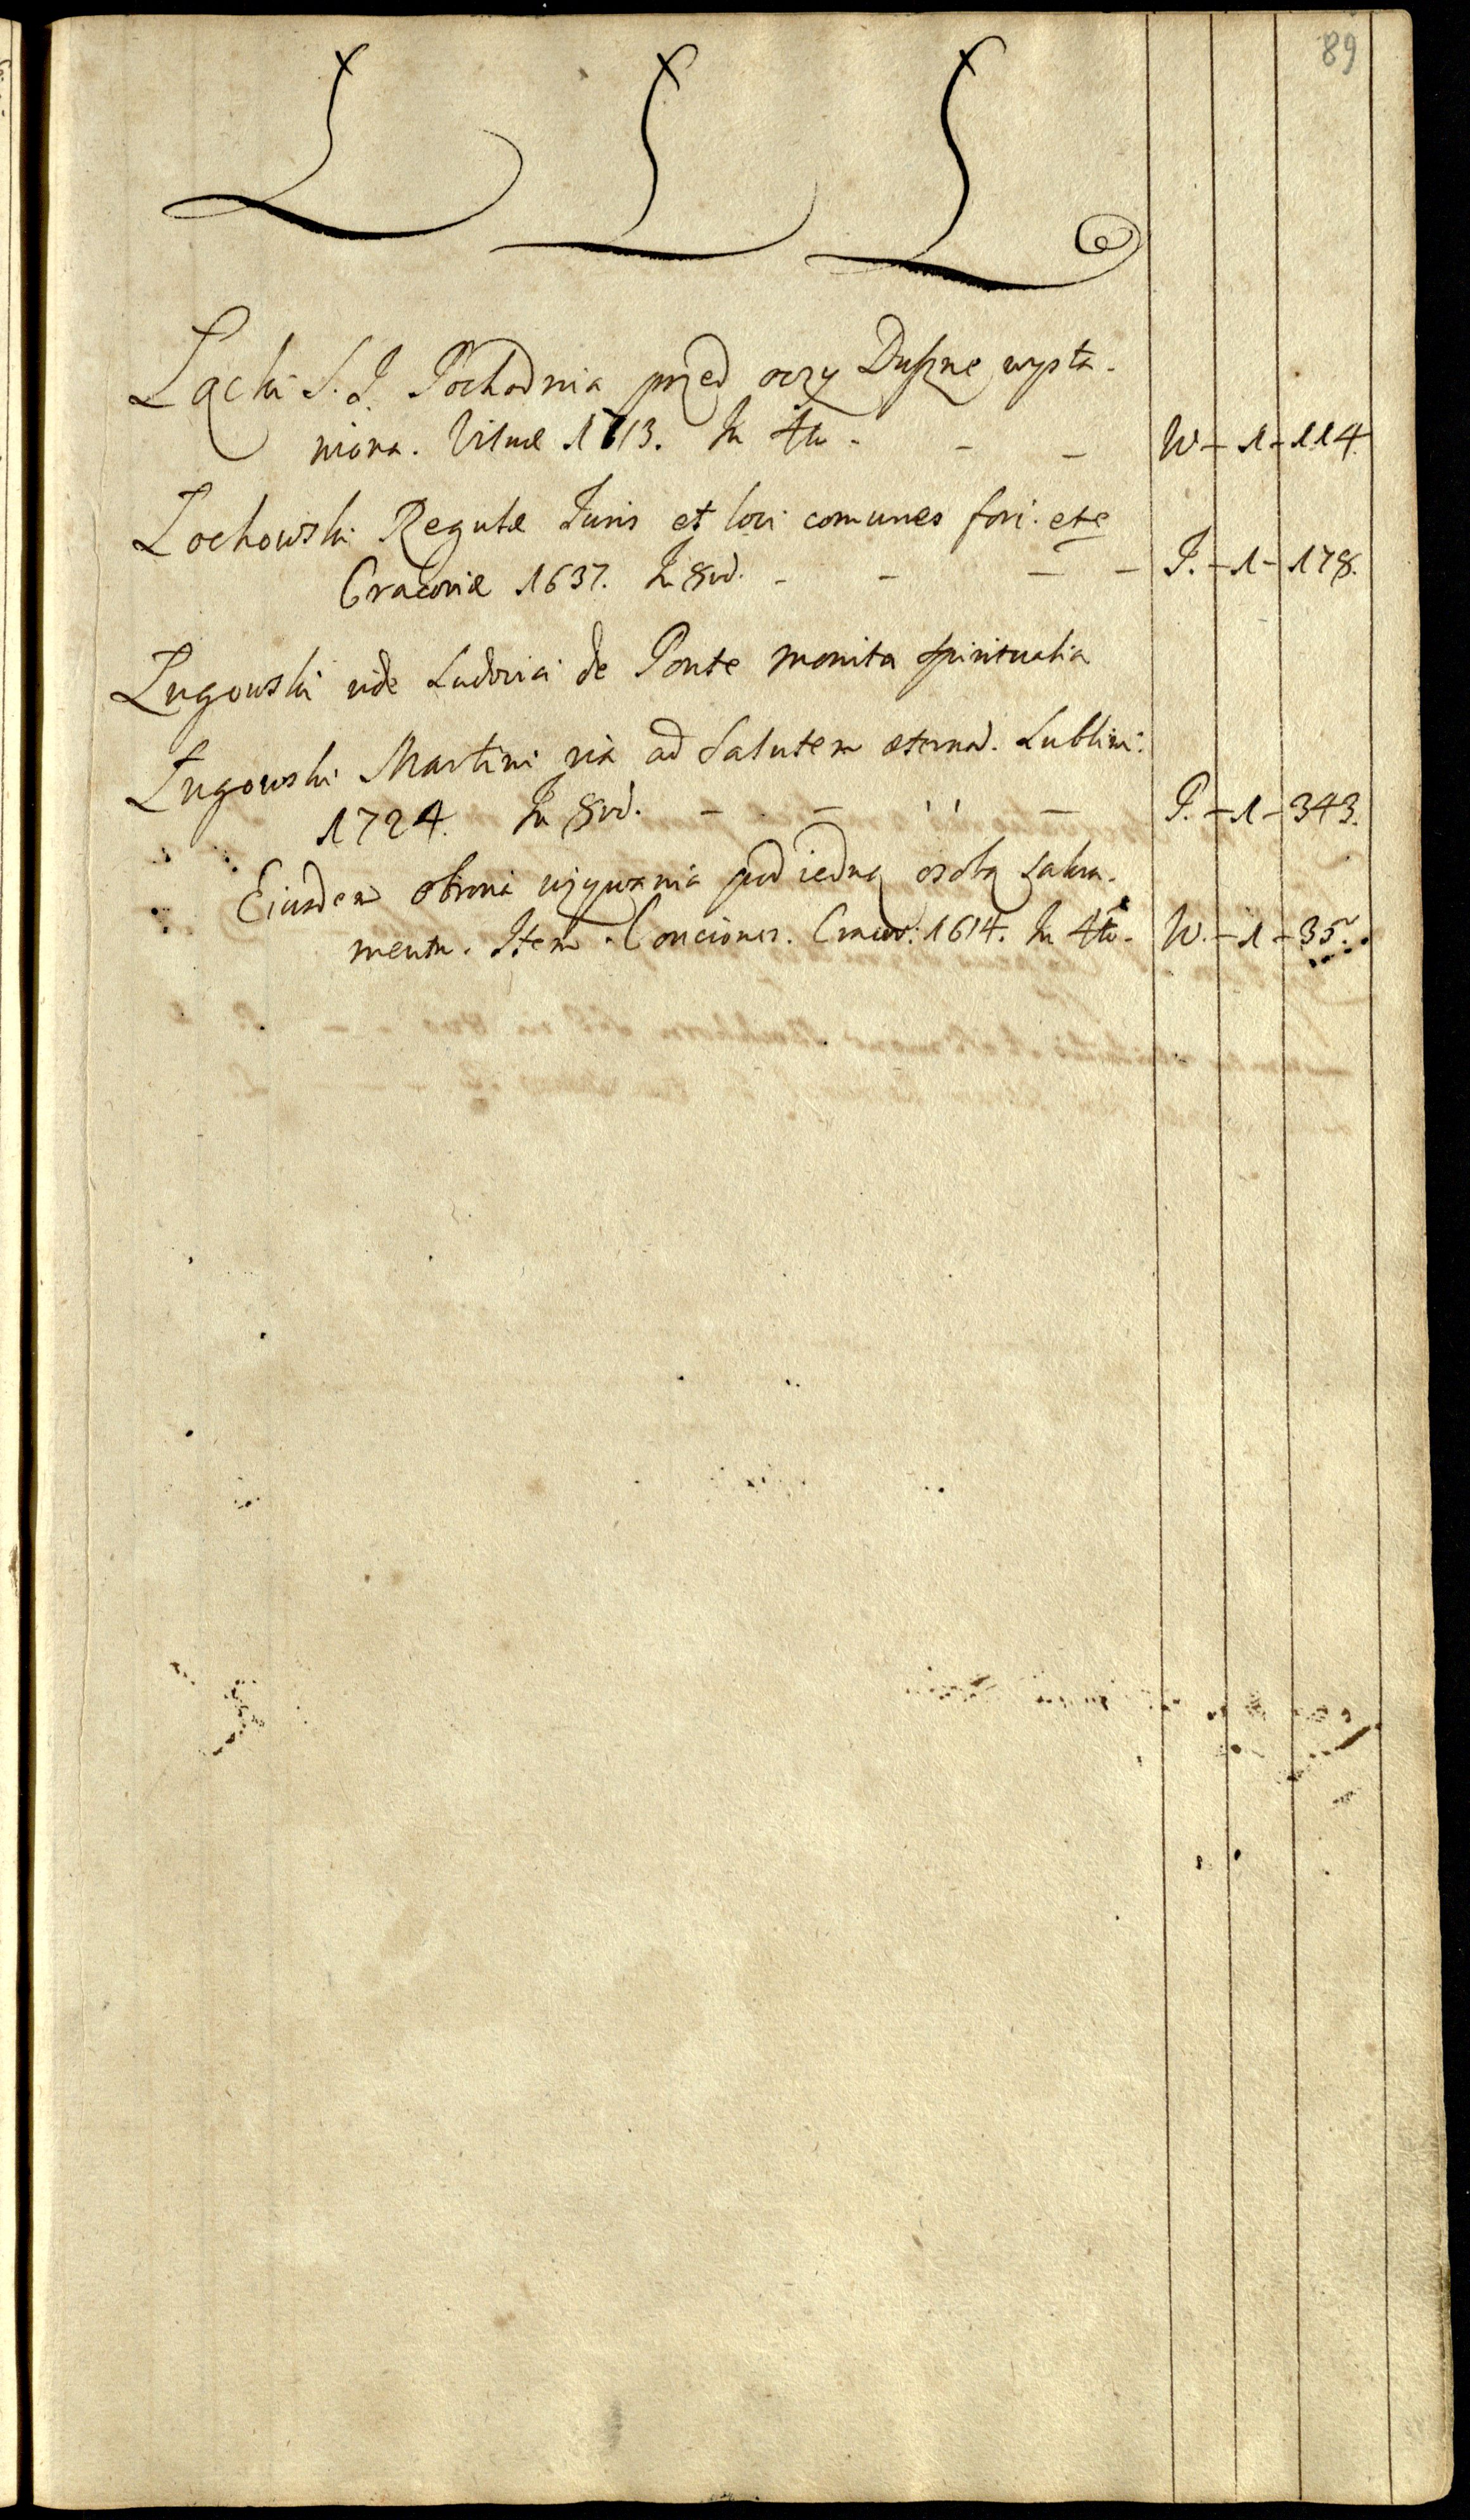 89
Ł Ł Ł
Łącki S. J. Pochodnia przed oczy Duszne wysta-
wiona. Vilnæ 1613. In 4to - - - W - 1 - 114.
Łochowski Regulæ Juris et loci comunes fori. etc
Cracoviæ 1637. In 8vo. - - - - J. - 1 - 178.
Ługowski vide Ludovici de Ponte monita spiritualia
Ługowski Martini via ad salutem æternã. Lublini:
1724. In 8vo. - - - P. - 1 - 343.
Eiusdem obrona używania pod iedną osobą sakra-
mentu. Item Conciones. Cracov: 1614. In 4to. W. - 1 - 35.